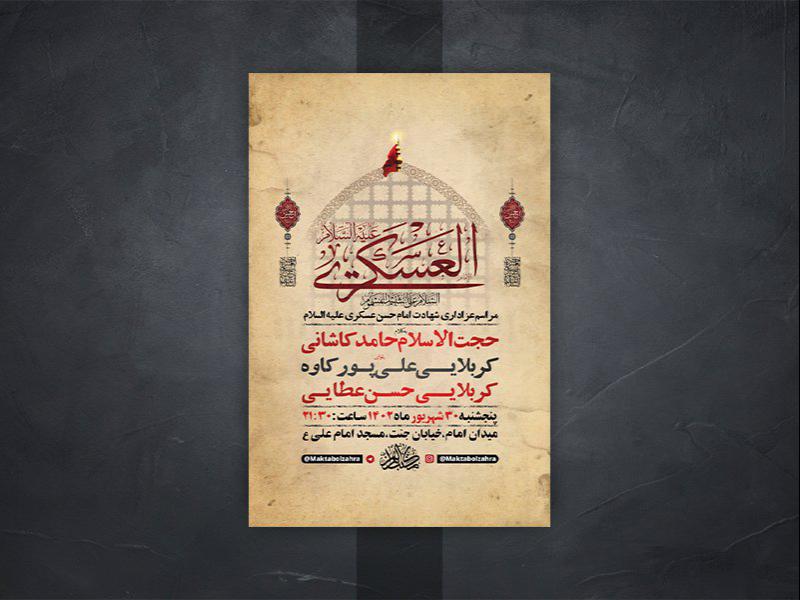 العسکری
علیه السلام
مراسم عزاداری شهادت امام حسن عسکری علیه السلام
حجت الاسلام حامد کاشانی
کربلایی علی پور کاوه
کربلایی حسن عطایی
پنجشنبه ۳۰ شهریور ماه ۱۴۰۲ ساعت: ۲۱:۳۰
میدان امام، خیابان جنت، مسجد امام علی ع
@Maktabolzahra @Maktabolzahra